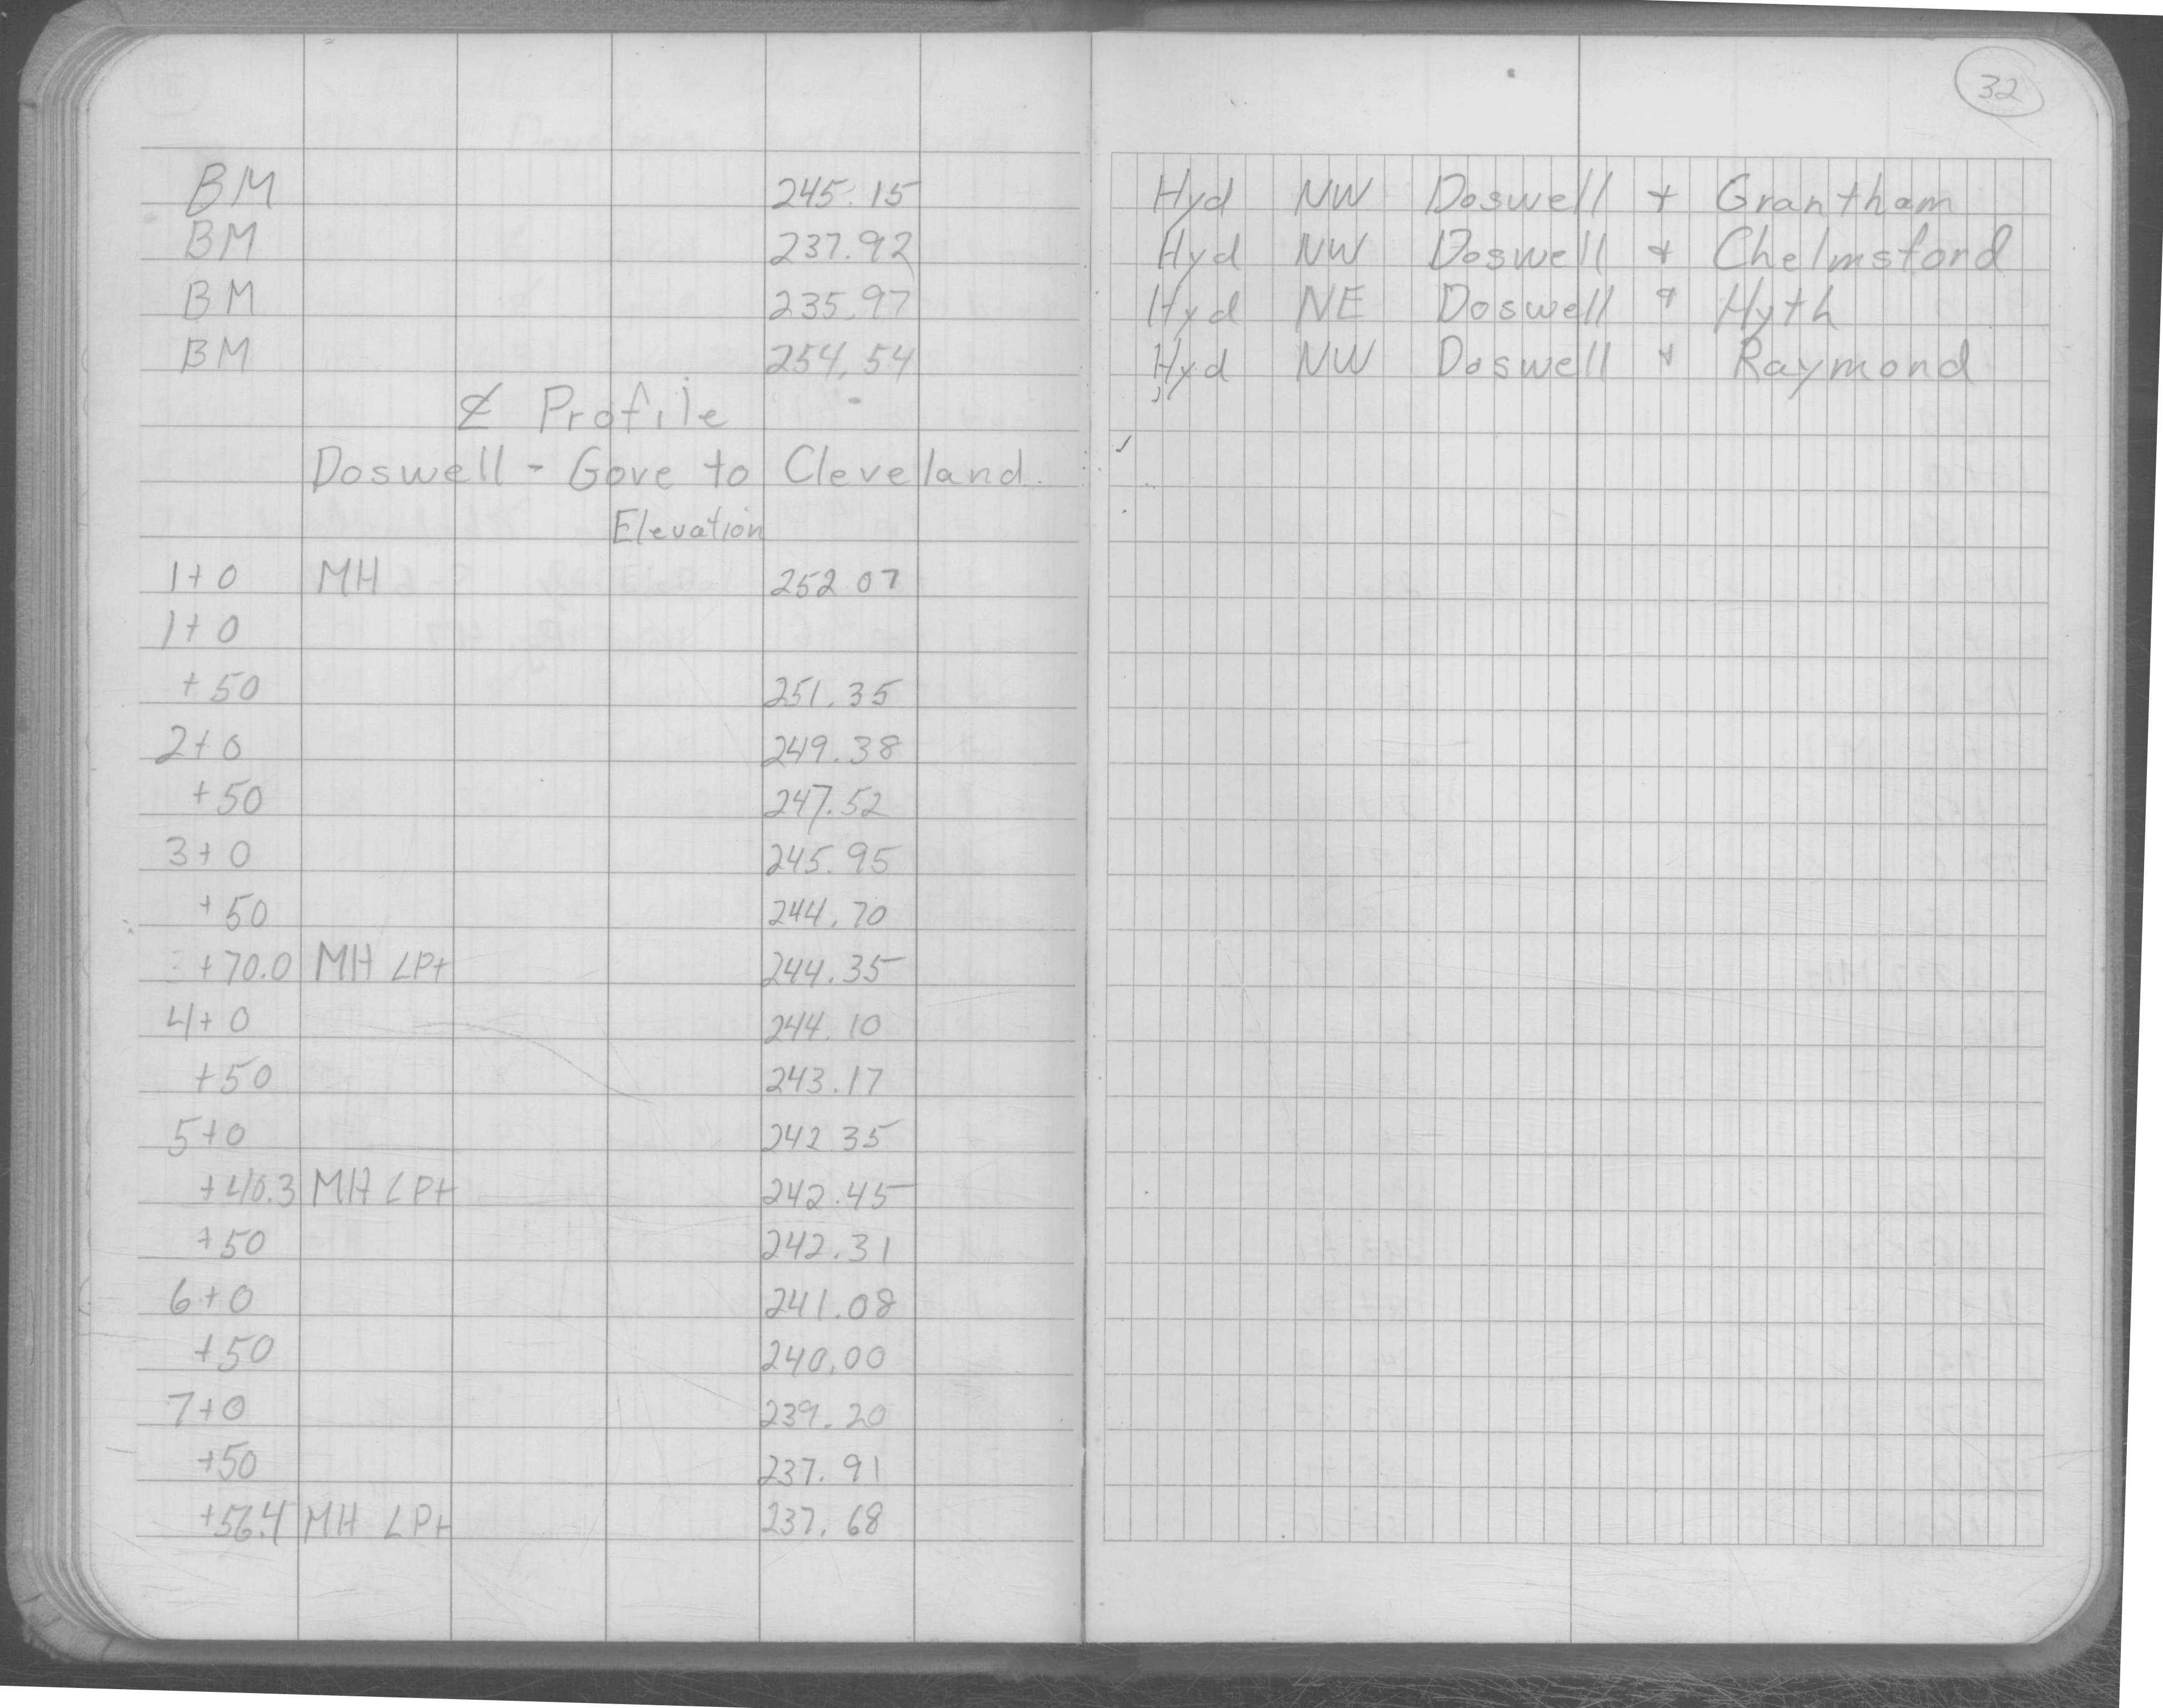 32
BM 245.15 Hyd NW Doswell + Grantham
BM 237.92 Hyd NW Doswell + Chelmsford
BM 235.97 Hyd NE Doswell + Hyth
BM 254.54 Hyd NW Doswell + Raymond
℄ Profile
Doswell - Gove to Cleveland.
Elevation
1+0 MH 252.07
1+0
+50 251.35
2+0 249.38
+50 247.52
3+0 245.95
+50 244.70
+70.0 MH LPt 244.35
4+0 244.10
+50 243.17
5+0 242.35
+40.3 MH LPt 242.45
+50 242.31
6+0 241.08
+50 240.00
7+0 239.20
+50 237.91
+56.4 MH LPt 237.68